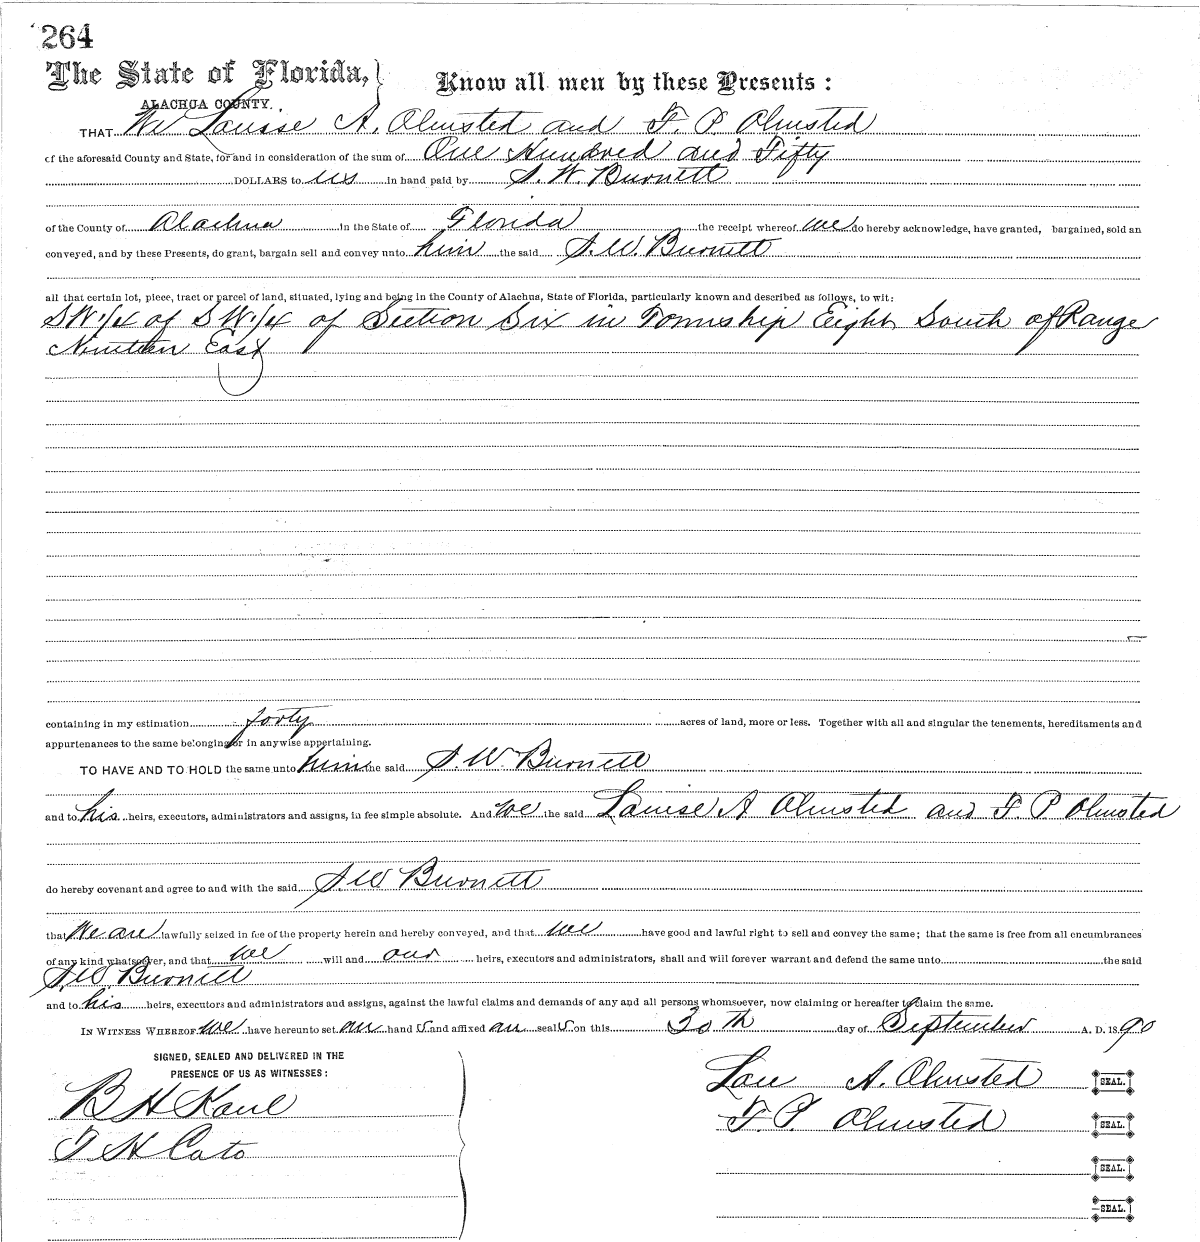 264
The State of Florida,
Know all men by these Presents:
ALACHUA COUNTY.
THAT We Louise A. Olmsted and F. P. Olmsted
of the aforesaid County and State, for and in consideration of the sum of One Hundred and Fifty
DOLLARS to us in hand paid by S. W. Burnett
of the County of Alachua in the State of Florida the receipt whereof we do hereby acknowledge, have granted, bargained, sold an
conveyed, and by these Presents, do grant, bargain sell and convey unto him the said S. W. Burnett
all that certain lot, piece, tract or parcel of land, situated, lying and being in the County of Alachua, State of Florida, particularly known and described as follows, to wit:
SW 1/4 of SW 1/4 of Section Six in Township Eight South of Range
Nineteen East
containing in my estimation forty acres of land, more or less. Together with all and singular the tenements, hereditaments and
appurtenances to the same belonging or in anywise appertaining.
TO HAVE AND TO HOLD the same unto him the said S. W. Burnett
and to his heirs, executors, administrators and assigns, in fee simple absolute. And we the said Louise A Olmsted and F. P Olmsted
do hereby covenant and agree to and with the said S W Burnett
that We are lawfully seized in fee of the property herein and hereby conveyed, and that we have good and lawful right to sell and convey the same; that the same is free from all encumbrances
of any kind whatsoever, and that we will and our heirs, executors and administrators, shall and will forever warrant and defend the same unto the said
S. W. Burnett
and to his heirs, executors and administrators and assigns, against the lawful claims and demands of any and all persons whomsoever, now claiming or hereafter to claim the same.
IN WITNESS WHEREOF we have hereunto set our hand s and affixed our seal s on this 30th day of September A. D. 1890
SIGNED, SEALED AND DELIVERED IN THE
PRESENCE OF US AS WITNESSES:
B H Kane
T H Cato
Lou A. Olmsted SEAL.
F. P. Olmsted SEAL.
SEAL.
SEAL.